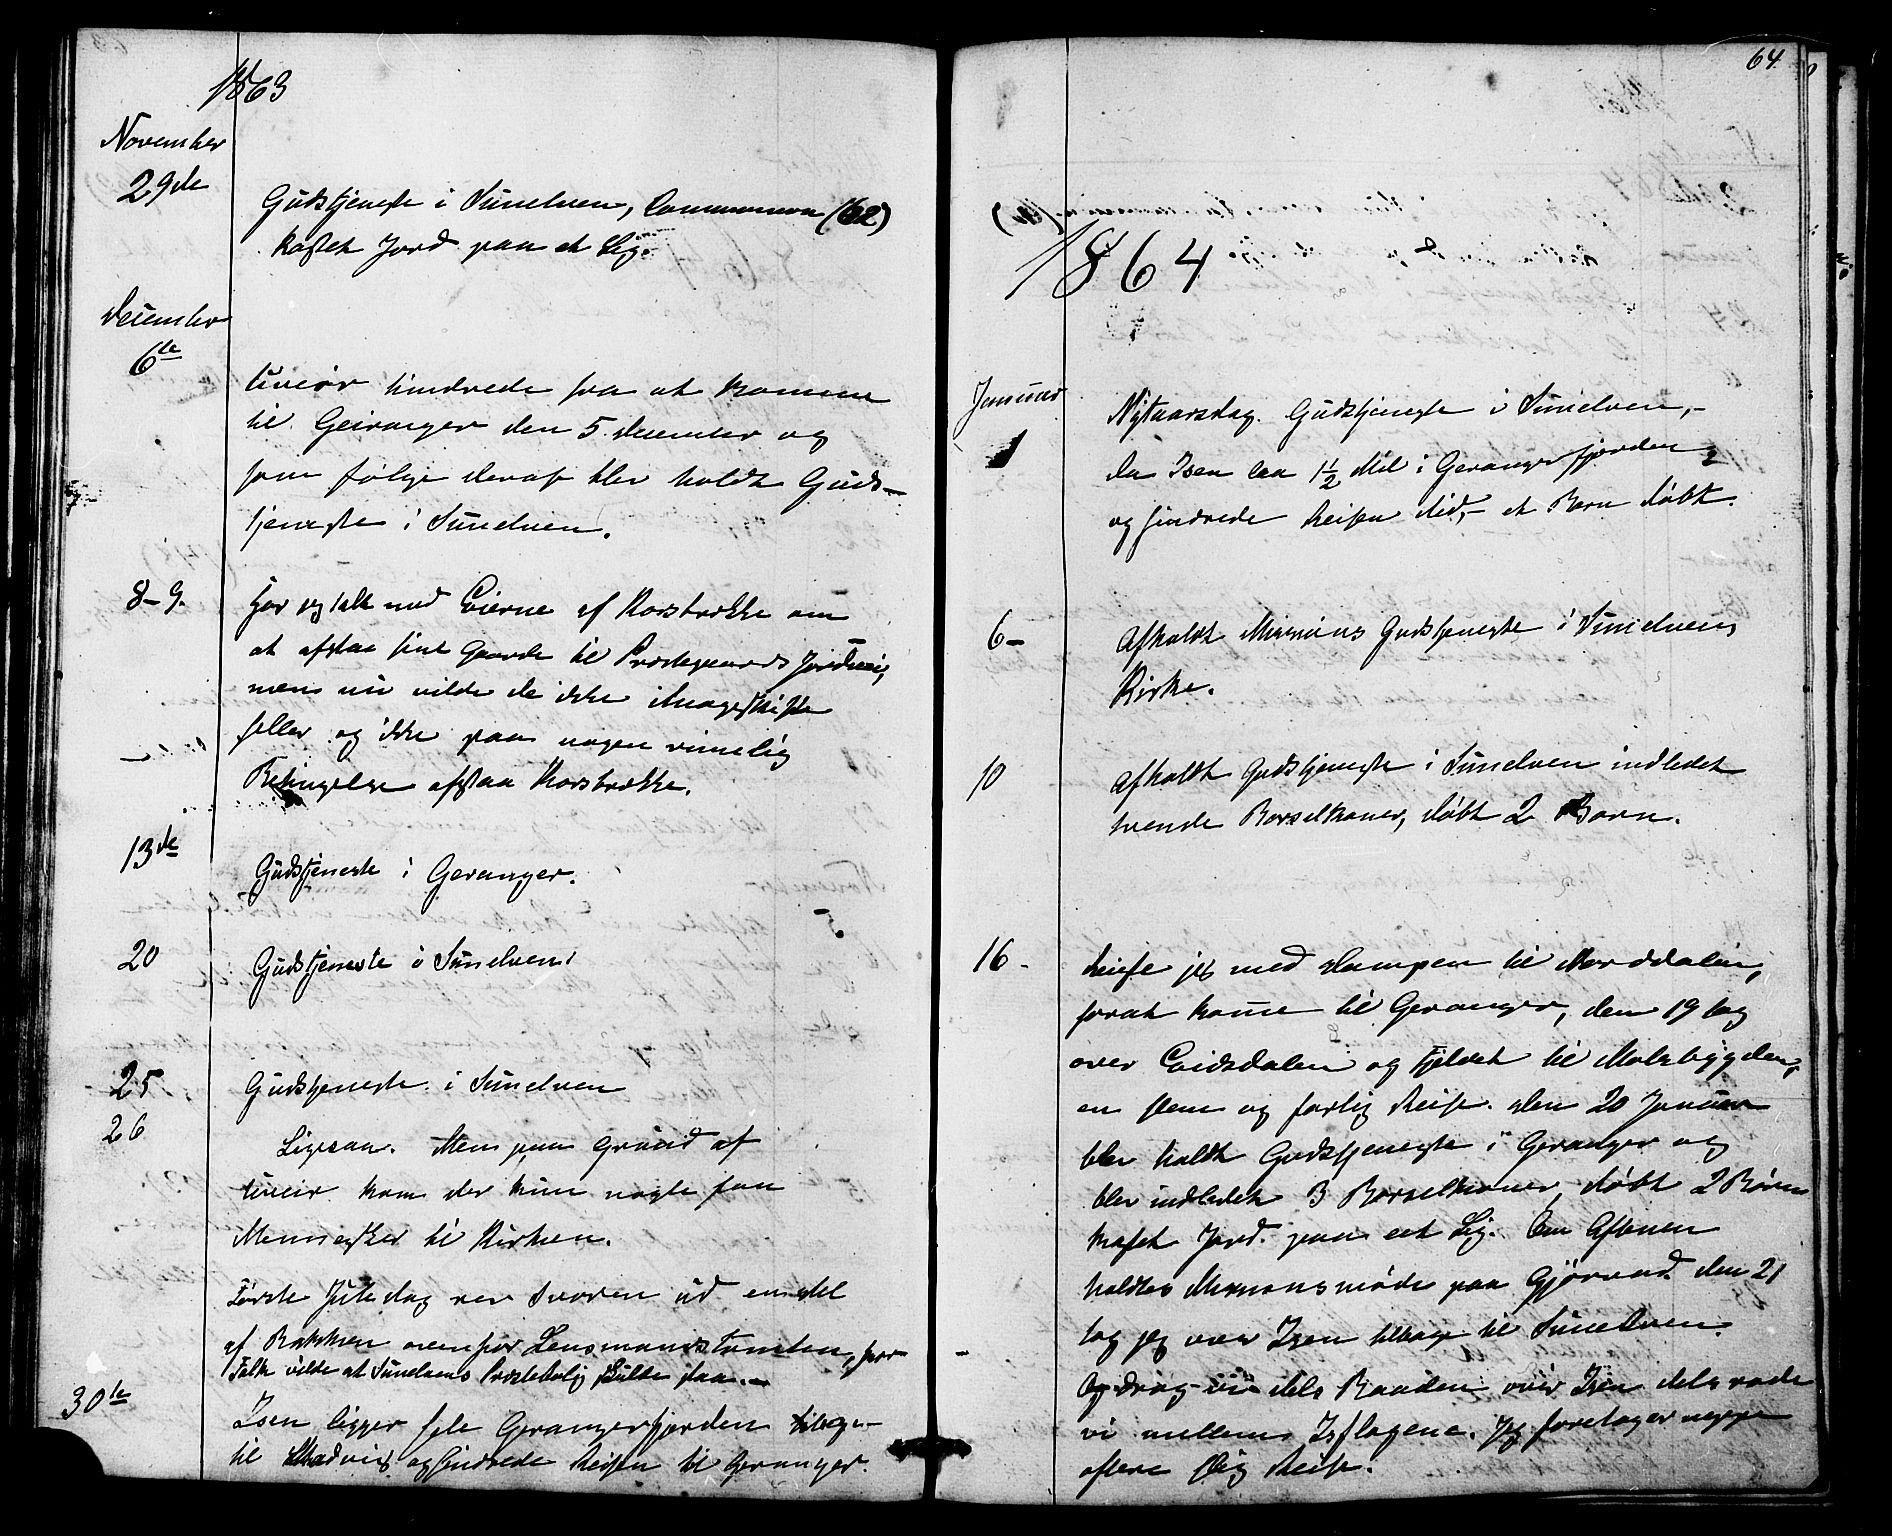 1863
November
29de
Gudstjeneste i Sunelven, Communion (62)
kastet Jord paa et Lig.
December
6te
Uveir hindrede fra at komme
til Geiranger den 5 December og
som følge deraf blev holdt Guds-
tjeneste i Sunelven.
8-9.
har jeg talt med Eierne af Korsbrekke om
at afstaa sine Gaarde til Præstegaards Jordvei,
men nu vilde de ikke i Mageskifte
heller og ikke paa nogen rimelig
Betingelse afstaa Korsbrekke.
13de
Gudstjeneste i Geranger.
20
Gudstjeneste i Sunelven
25
Gudstjeneste i Sunelven
26
Ligesaa. Men paa Grund af
Uveir kom der kun nogle faa
Mennesker til Kirken.
Første Juledag rev Svoren ud en del
af Bakken ovenfor Lensmandstomten, hvor
Folk vilde at Sunelvens Præstebolig skulde staa. -
30te
Isen ligger hele Gerangerfjorden
til og hindrede Reisen til Geranger.
64
1864
Januar
1
Nytaarsdag. Gudstjeneste i Sunelven, -
da Isen laa 1½ Mil i Gerangerfjorden
og hindrede Reisen did, - et Barn døbt.
6-
Afholdt Missions Gudstjeneste i Sunelvens
Kirke.
10
Afholdt Gudstjeneste i Sunelven indledet
tvende Barselkoner, døbt 2 Børn.
16-
Reiste jeg med Dampen til Norddalen,
forat komme til Geranger, den 19 tog
over Eidsdalen og Fjeldet til Møldbygden,
en slem og farlig Reise. Den 20 Januar
blev holdt Gudstjeneste i Geranger og
blev indledet 3 Barselkoner, døbt 2 Børn
kastet Jord paa eet Lig. Om Aftenen
holdtes Missionsmøde paa Gjørvad. Den 21
tog jeg over Isen tilbage til Sunelven.
Og drog vi dels Baaden over Isen dels rode
vi mellem Isflagene. Jeg foretager neppe
oftere slig Reise.